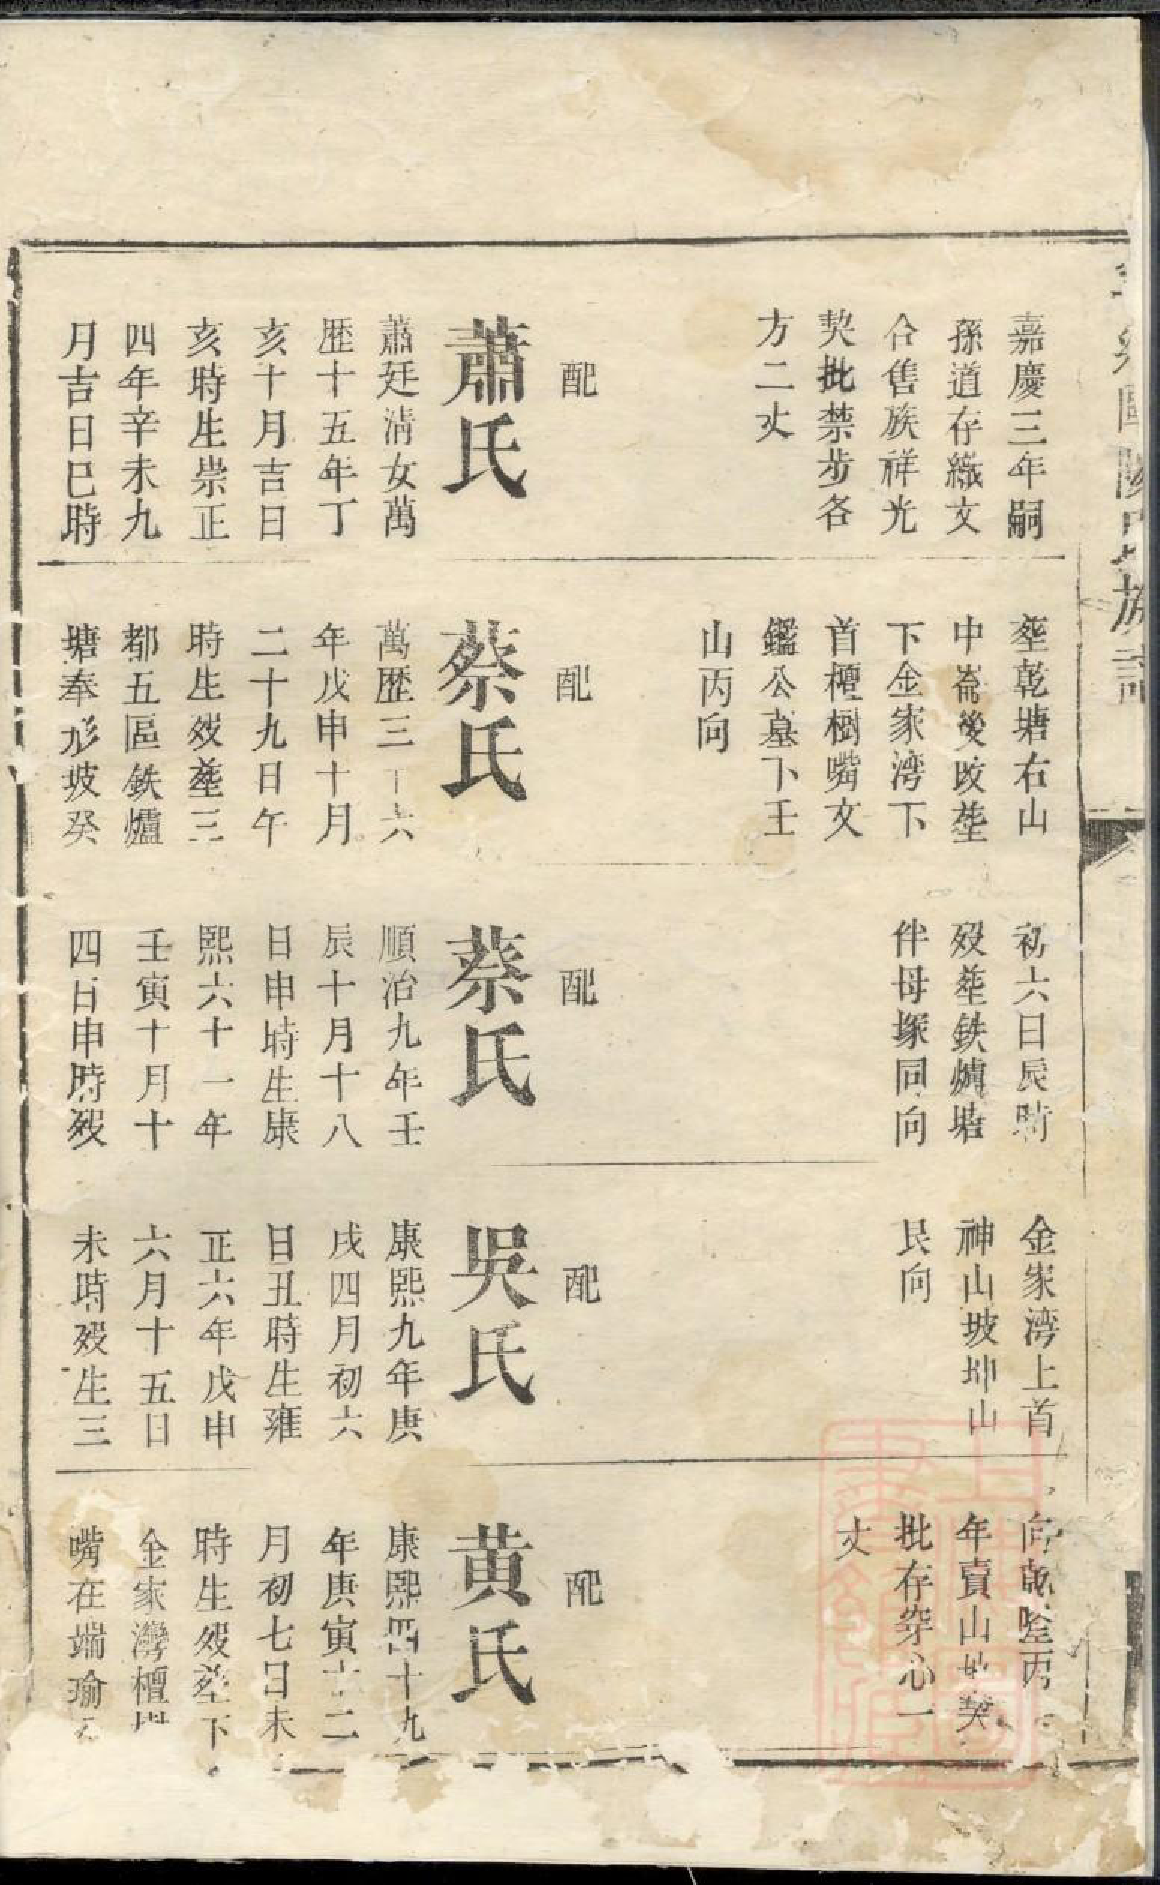 嘉慶三年嗣
孫道存纖文
合售族祥光
契批禁步各
方二丈
配
蕭氏
蕭廷清女萬
歴十五年丁
亥十月吉日
亥時生崇正
四年辛未九
月吉日巳時
塟乾塘右山
中崙後改塟
下金家湾下
首檀樹嘴文
鑑公墓下壬
山丙向
配
蔡氏
萬歴三十六
年戊申十月
二十九日午
時生殁塟三
都五區鉄爐
塘奉形坡癸
初六日辰時
殁塟鉄爐塘
伴母塚同向
配
蔡氏
順治九年壬
辰十月十八
日申時生康
熙六十一年
壬寅十月十
四日申時殁
金家湾上首
神山坡坤山
艮向
配
吳氏
康熙九年庚
戌四月初六
日丑時生雍
正六年戊申
六月十五日
未時殁生三
向乾隆
年賣山契
批存穿心一
丈
配
黄氏
康熙四十九
年庚寅十二
月初七日未
時生殁塟下
金家灣檀樹
嘴在端瑜
族譜